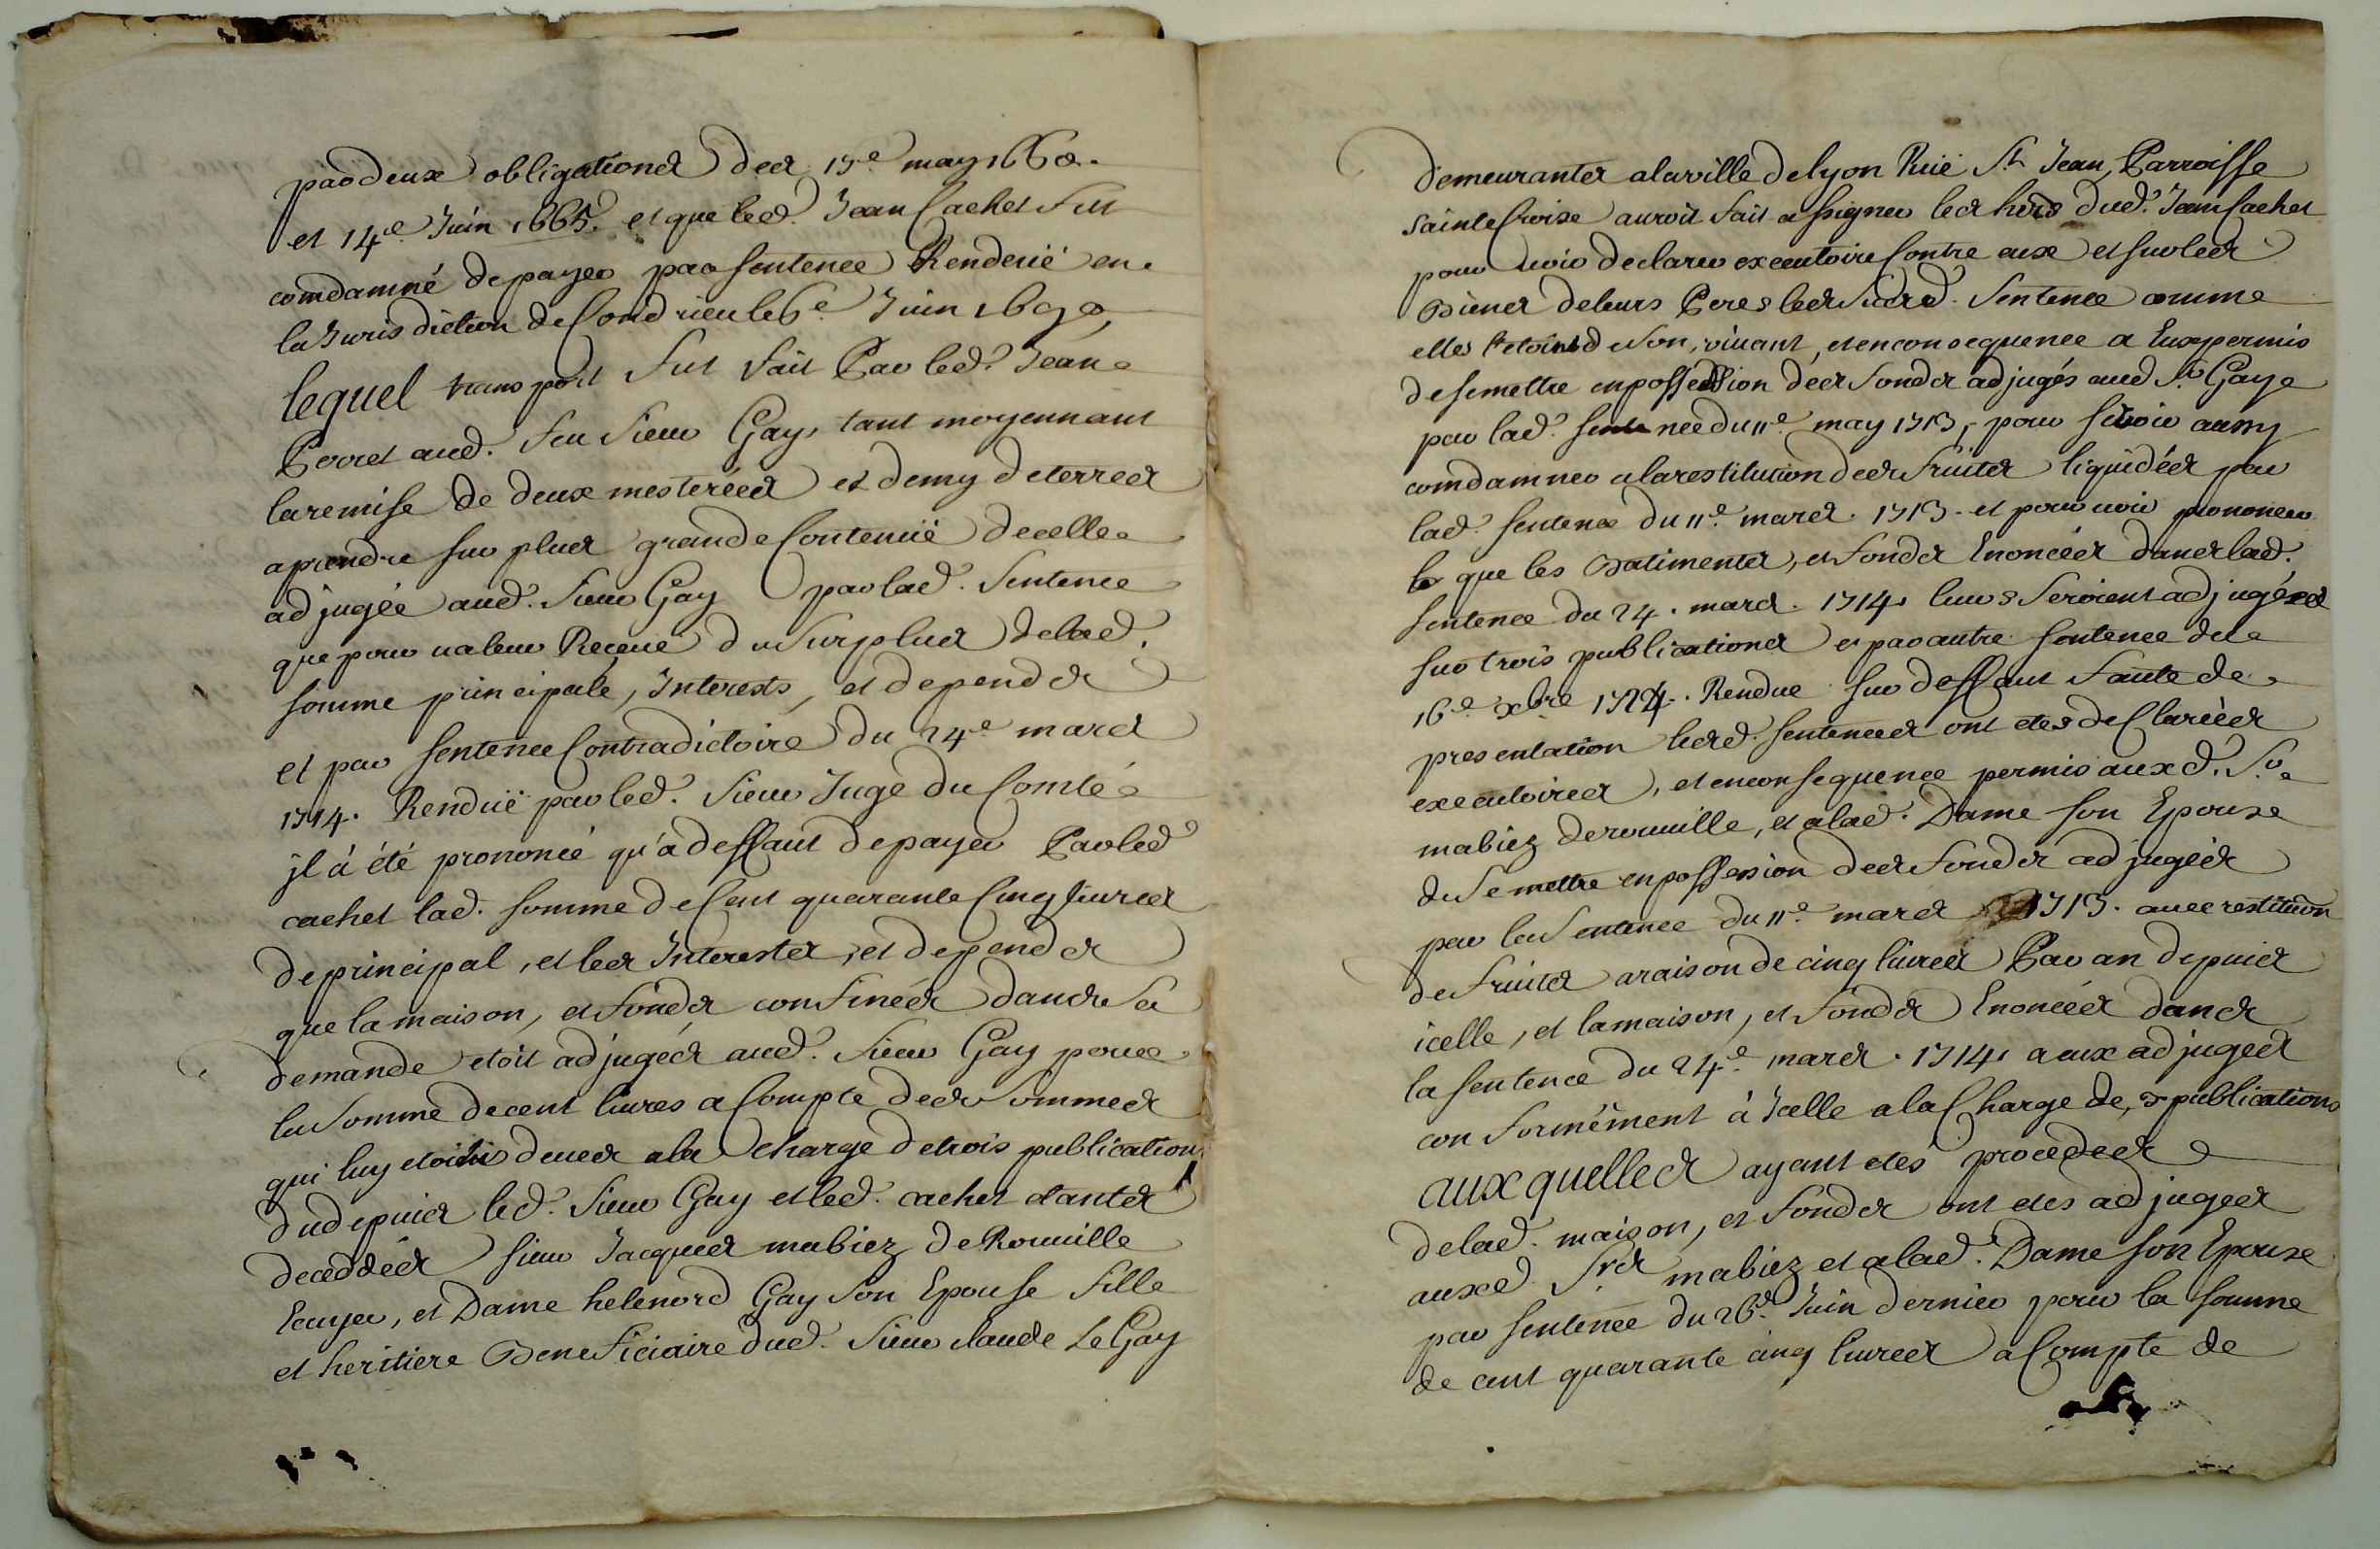 par deux obligations des 15e may 1660.
et 14e Juin 1665. et que led. Jean Cachet fut
comdamné de payer par sentence Rendeüe en
la Jurisdiction de Condrieu le 6e Juin 1690,
lequel transport fut fait Par led. Jean
Perret aud. feu sieur Gay, tant moyennant
la remise de deux mesterées et demy de terres
aprendre sur plus grande Contenüe de celle
adjugée aud. sieur Gay par lad. sentence
que pour valeur Receue du surplus de lad.
somme principale, Interests, et depends
et par sentence Contradictoire du 24e mars
1714. Rendüe par led. sieur Juge du Comté
jl à été prononcé qu'à deffaut de payer Par led
cachet lad. somme de Cent quarante Cinq livres
de principal, et les Interests, et depends
que la maison, et fonds confinés dans sa
demande etoit adjugés aud. sieur Gay pour
la somme de cent livres a Compte des sommes
qui luy etoint deues a la charge de trois publications
du depuis led. sieur Gay et led. cachet etants
deceddés sieur Jacques mabiez de Rouuille
Ecuyer, et Dame helenord Gay son Epouse fille
et heritiere Beneficiaire dud. sieur claude Le Gay
demeurants a la ville de lyon Rüe St Jean, Parroisse
sainte Croise auroit fait assigner les hers dud. Jean Cachet
pour voir declarer executoire Contre eux et sur les
Biens de leurs Peres lesd. sentence comme
elles l'etoint de son vivant, et en consequence a Eux permis
de se mettre en possession des fonds adjugés aud Sr Gay
par lad. sentence du 11e may 1713, pour se voir aussy
comdamner a la restitution des fruits liquidés par
lad. sentence du 11e mars 1713. et pour voir prononcer
que les Batiments, et fonds Enoncés dans lad.
sentence du 24. mars 1714. leurs seroient adjugés
sur trois publications et par autre sentence du
16e xbre 1724. Rendue sur deffaut faute de
presentation lesd. sentences ont etes declarées
executoires, et en consequence permis auxd. Sr
mabiez de rouuille, et a lad. Dame son Epouse
de se mettre en possession des fonds adjugés
par la sentence du 11e mars 1713. avec restitution
de fruits a raison de cinq livres Par an depuis
icelle, et la maison, et fonds Enoncés dans
la sentence du 24e mars 1714. a eux adjugés
conformément à Icelle a la Charge de 3 publications
auxquelles ayant etés procedés
de lad. maison, et fonds ont etes adjugés
auxd. Srs mabiez et a lad. Dame son Epouse
par sentence du 26e Juin dernier pour la somme
de cent quarante cinq livres a Compte de